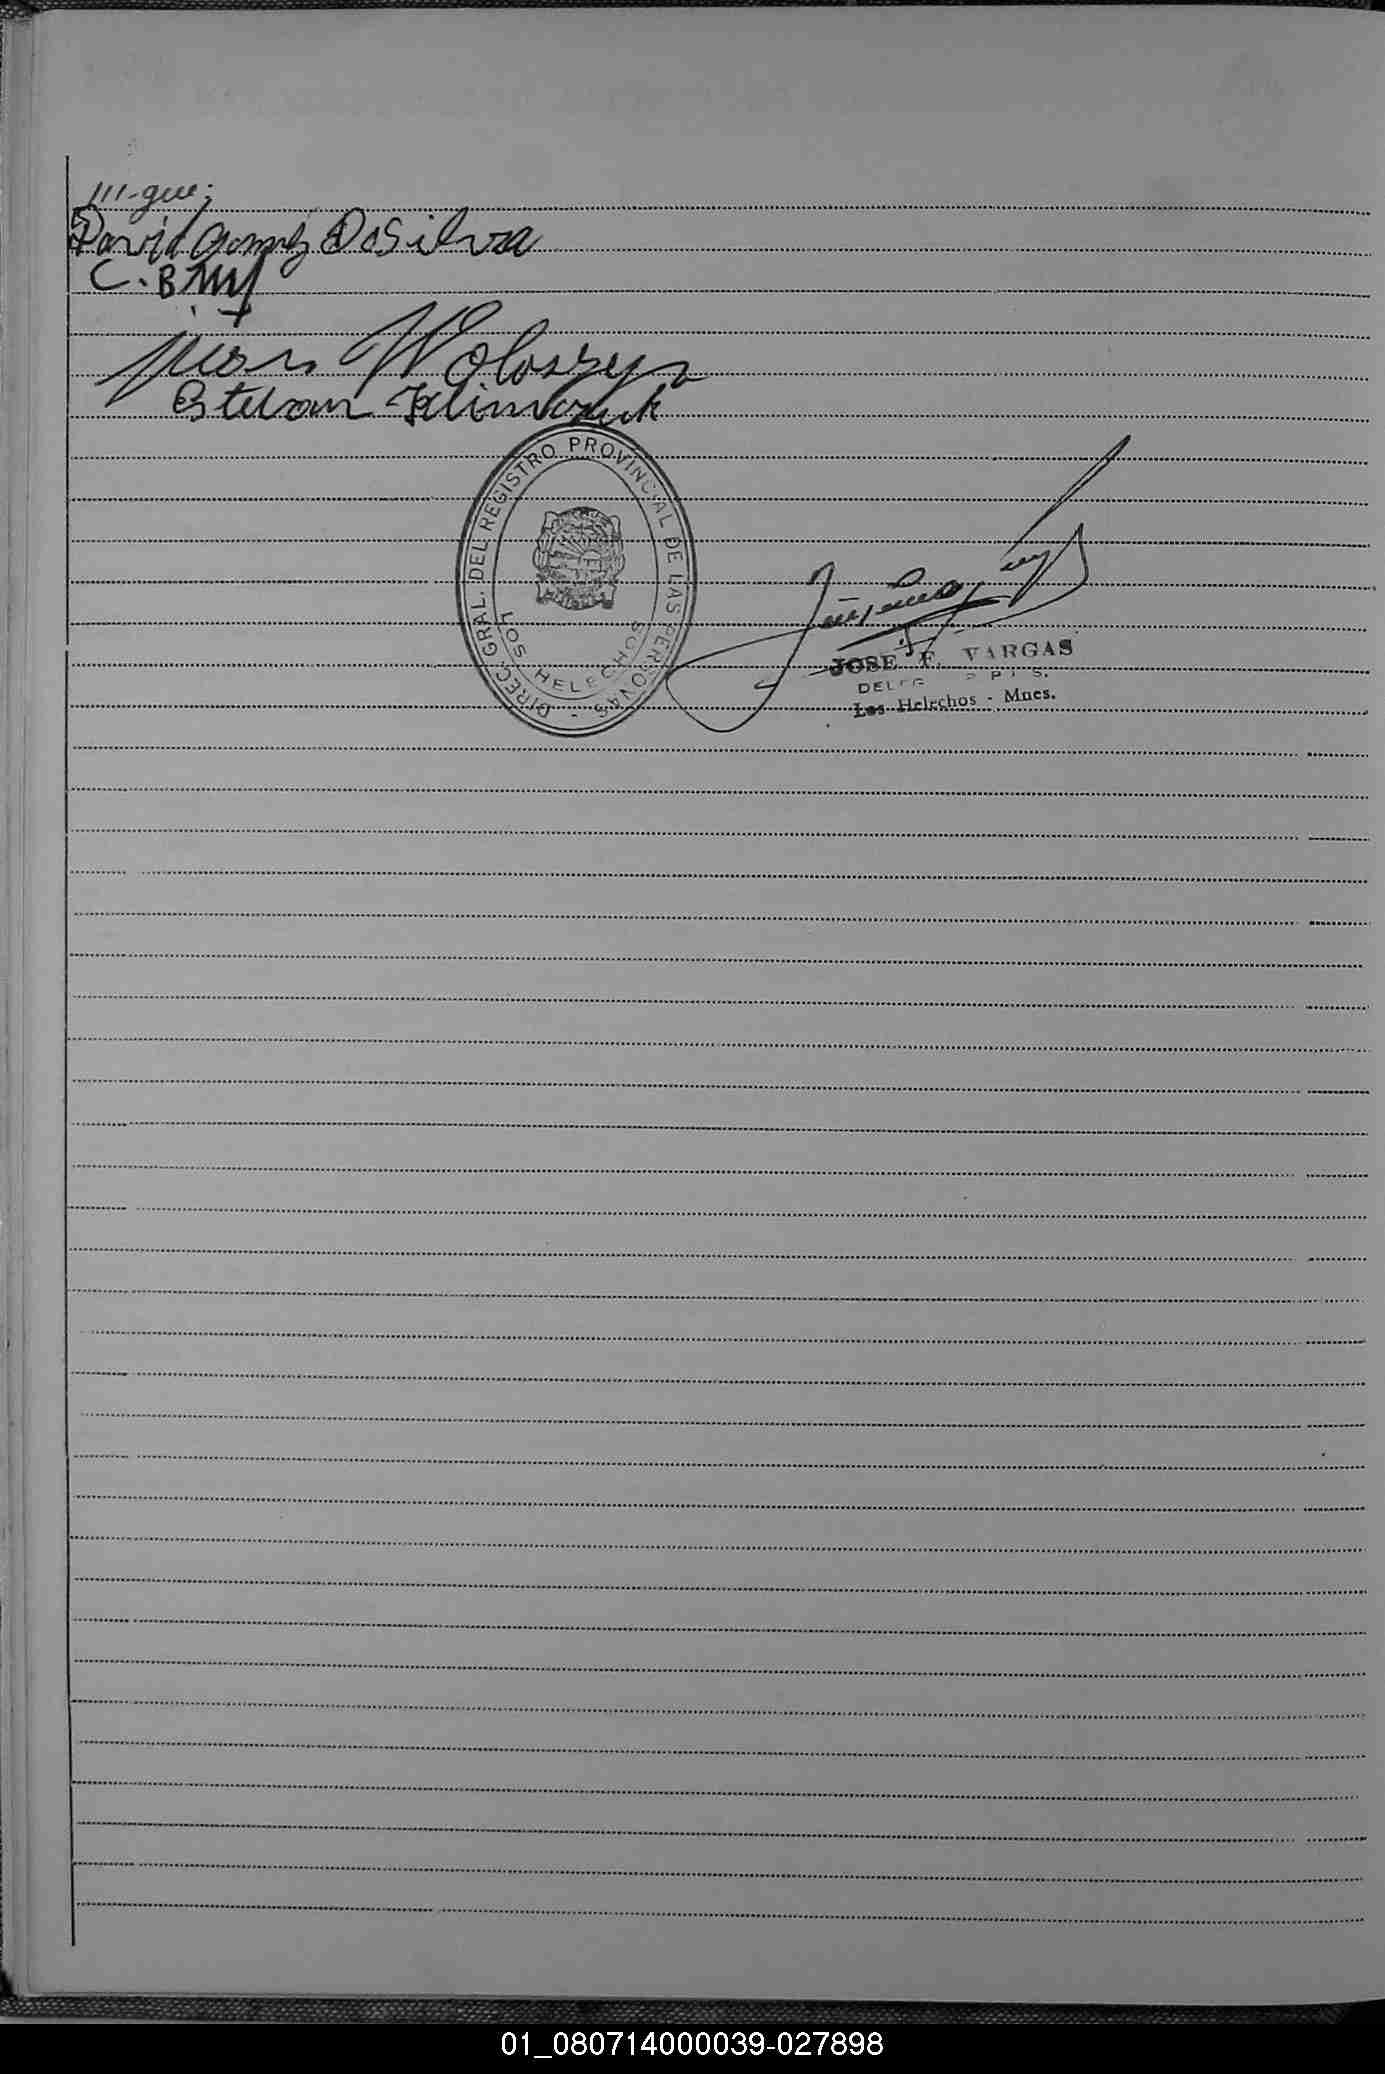 ///-gue;
David Gomez DaSilva
C.
juan Woloszyn
Esteban Klimczuk
DIREC. GRAL. DEL REGISTRO PROVINCIAL DE LAS PERSONAS -
LOS HELECHOS
JOSE F. VARGAS
Los Helechos - Mnes.
01_080714000039-027898